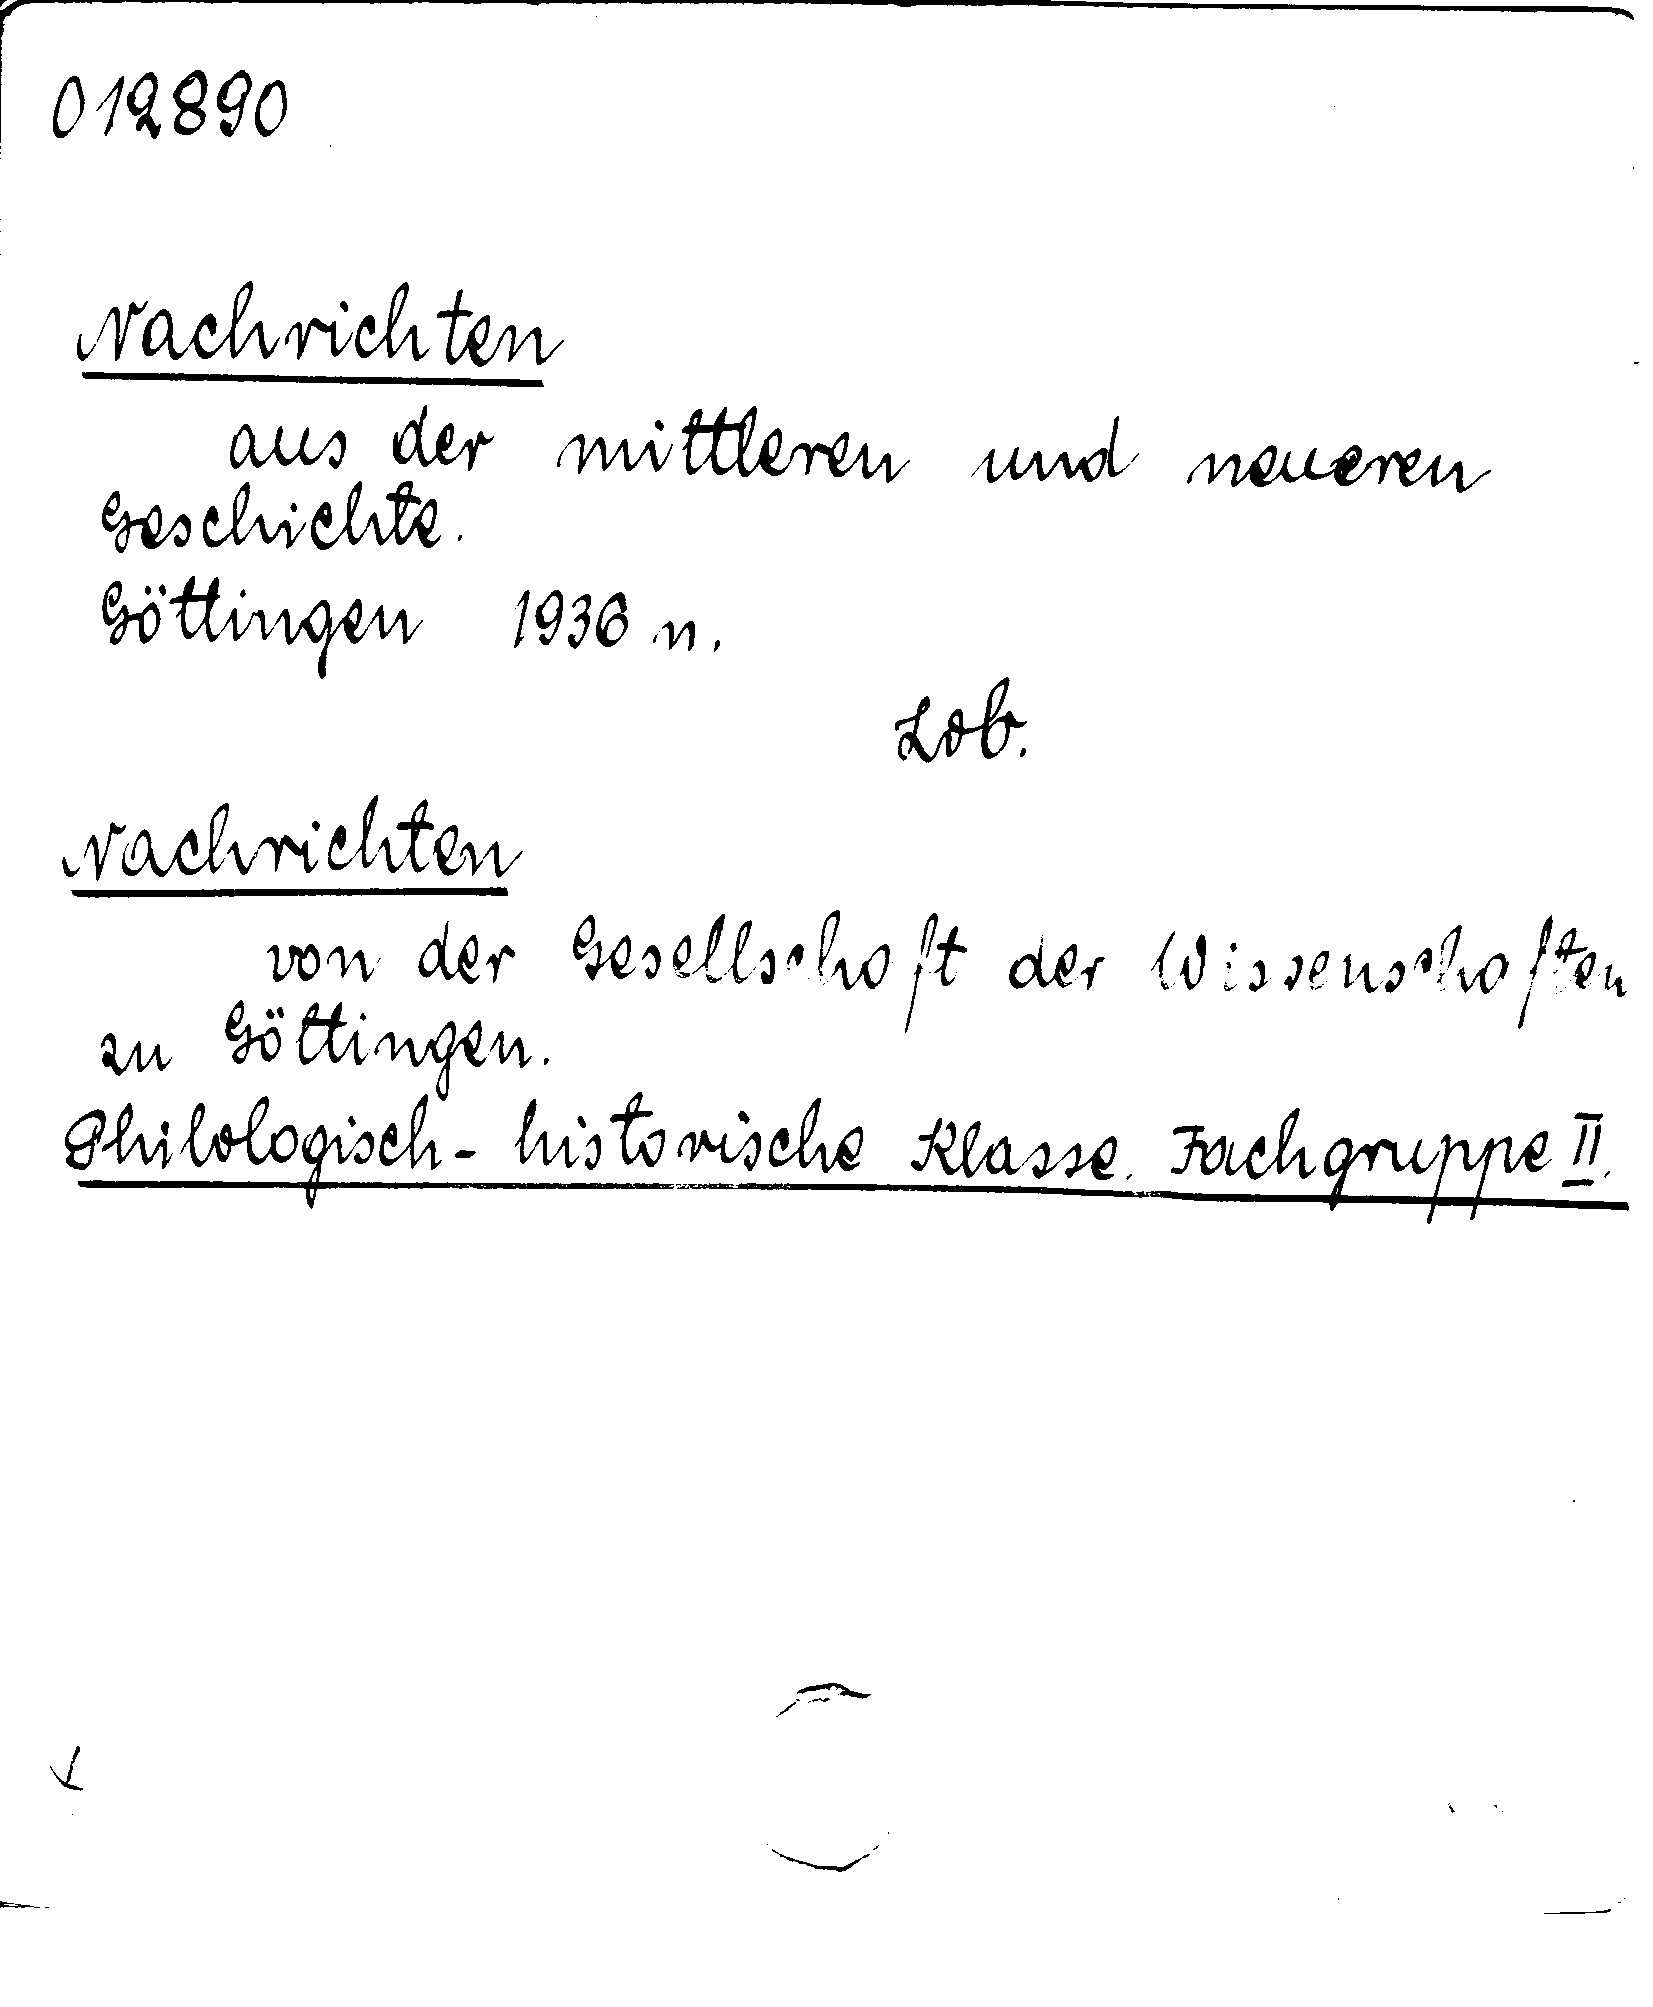 012890
Nachrichten
aus der mittleren und neueren
Geschichte.
Göttingen 1936 n.
Zob.
Nachrichten
von der Gesellschaft der Wissenschaften
zu Göttingen.
Philologisch-historische Klasse. Fachgruppe II.